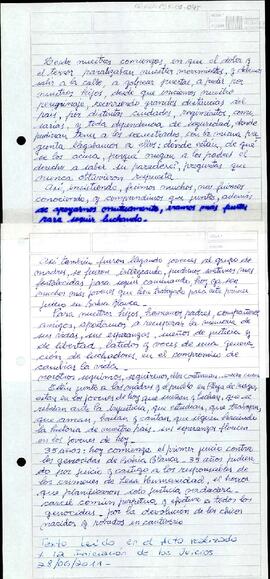 Desde nuestros comienzos, en que el dolor y
el terror paralizaban nuestros movimientos, y debimos
salir a la calle, a golpear puertas, a pedir por
nuestros hijos, desde que iniciamos nuestro
peregrinaje, recorriendo grandes distancias del
país, por distintas ciudades, regimientos, comi
sarías, y toda dependencia de seguridad, donde
pudieran tener a los secuestrados, con la misma pre
gunta llegábamos a ellos: dónde están, de qué
se los acusa, porqué niegan a los padres el
derecho a saber su paradero, preguntas que
nunca obtuvieron respuesta
Así, insistiendo, primero muchos, nos fuimos
conociendo, y comprendimos que juntos, además
de apoyarnos mutuamente, éramos más fuertes
para seguir luchando.
Así también fueron llegando jóvenes al grupo de
madres, se fueron integrando, pudimos sentirnos más
fortalecidas para seguir caminando, hoy ya son
muchos más jóvenes que han trabajado para este primer
juicio en Bahía Blanca.
Para nuestros hijos, hermanos, padres, compañeros,
amigos, apostamos a recuperar la memoria de
sus vidas, sus esperanzas, sueños de justicia y
de libertad, latidos y voces de una gene
ración de luchadores, en el compromiso de
cambiar la vida.
nosotros seguimos, seguiremos, ellos continúan
Ellos, junto a las madres y el pueblo en Plaza de Mayo,
están en los jóvenes de hoy que sueñan y luchan, que se
rebelan ante la injusticia, que estudian, que trabajan,
que aman, bailan y cantan, que siguen haciendo
la historia de nuestro país, sus esperanzas florecen
en los jóvenes de hoy.
35 años: hoy comienza el primer juicio contra
los genocidas de Bahía Blanca. 35 años pidiendo
por juicio y castigo a los responsables de
los crímenes de Lesa Humanidad, el horror
que planificaron, sólo justicia verdadera.
cárcel común, perpetua y efectiva a todos los
genocidas, por la devolución de los chicos
nacidos y robados en cautiverio
Texto leído en el Acto realizado
x la iniciación de los Juicios
28/06/2011-